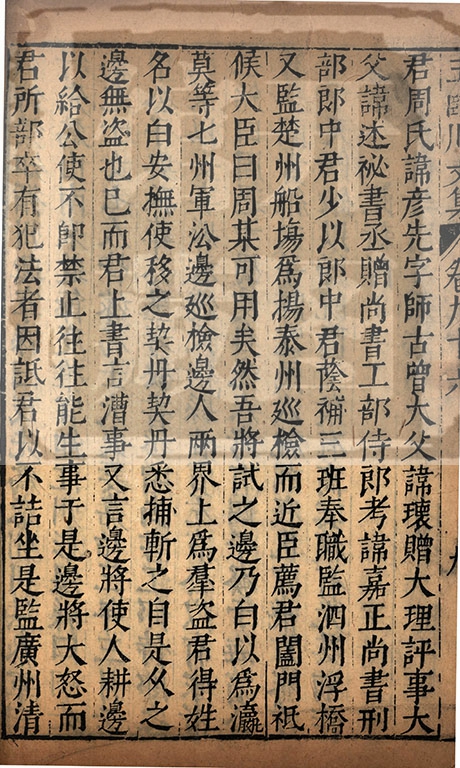 王臨川文集 卷九十六 九
君周氏諱彥先字師古曾大父諱瓌贈大理評事大
父諱述祕書丞贈尚書工部侍郎考諱嘉正尚書刑
部郎中君少以郎中君蔭補三班奉職監泗州浮橋
又監楚州船塲爲揚泰州巡檢而近臣薦君閤門祗
候大臣曰周某可用矣然吾將試之邊乃曰以爲瀛
莫等七州軍沿邊巡檢邊人兩界上爲羣盜君得姓
名以白安撫使移之契丹契丹悉捕斬之自是久之
邊無盗也已而君上書言漕事又言邊將使人耕邊
以給公使不卽禁止往往能生事于是邊將大怒而
君所部卒有犯法者因詆君以不詰坐是監廣州清